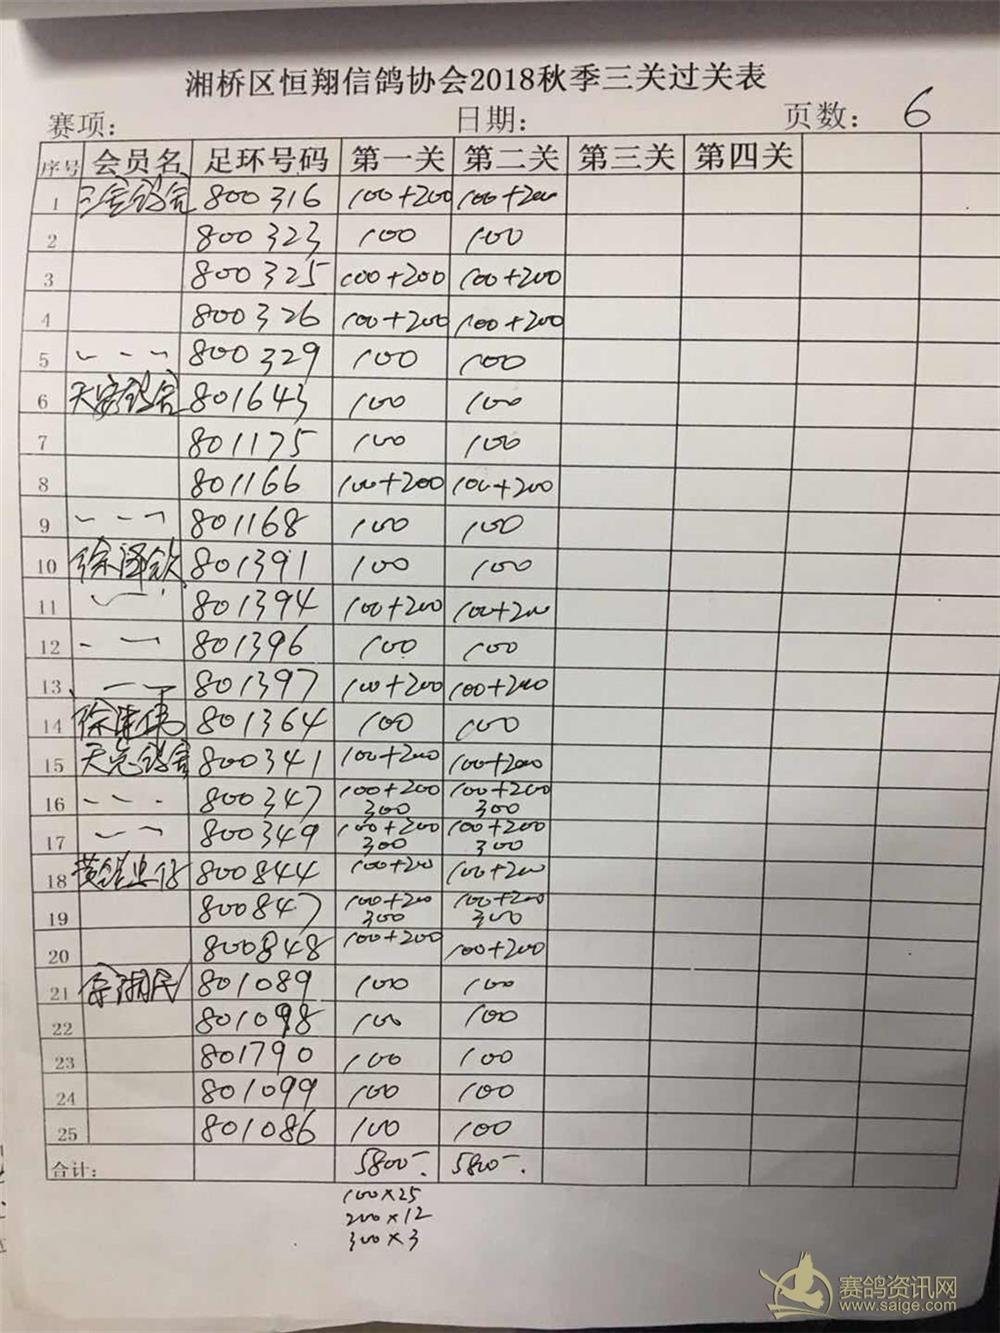 湘桥区恒翔信鸽协会2018秋季三关过关表
赛项： 日期： 页数： 6
序号 会员名 足环号码 第一关 第二关 第三关 第四关
1 三金鸽舍 800316 100+200 100+200
2 800323 100 100
3 800325 100+200 100+200
4 800326 100+200 100+200
5 800329 100 100
6 天安鸽舍 801643 100 100
7 801175 100 100
8 801166 100+200 100+200
9 801168 100 100
10 徐泽钦 801391 100 100
11 801394 100+200 100+200
12 801396 100 100
13 801397 100+200 100+200
14 徐 801364 100 100
15 天 鸽舍 800341 100+200 100+200
16 800347 100+200 100+200
300 300
17 800349 100+200 100+200
300 300
18 黄 800844 100+200 100+200
19 800847 100+200 100+200
300 300
20 800848 100+200 100+200
21 湘民 801089 100 100
22 801098 100 100
23 801790 100 100
24 801099 100 100
25 801086 100 100
合计： 5800- 5800-
100×25
200×12
300×3
赛鸽资讯网
www.saige.com